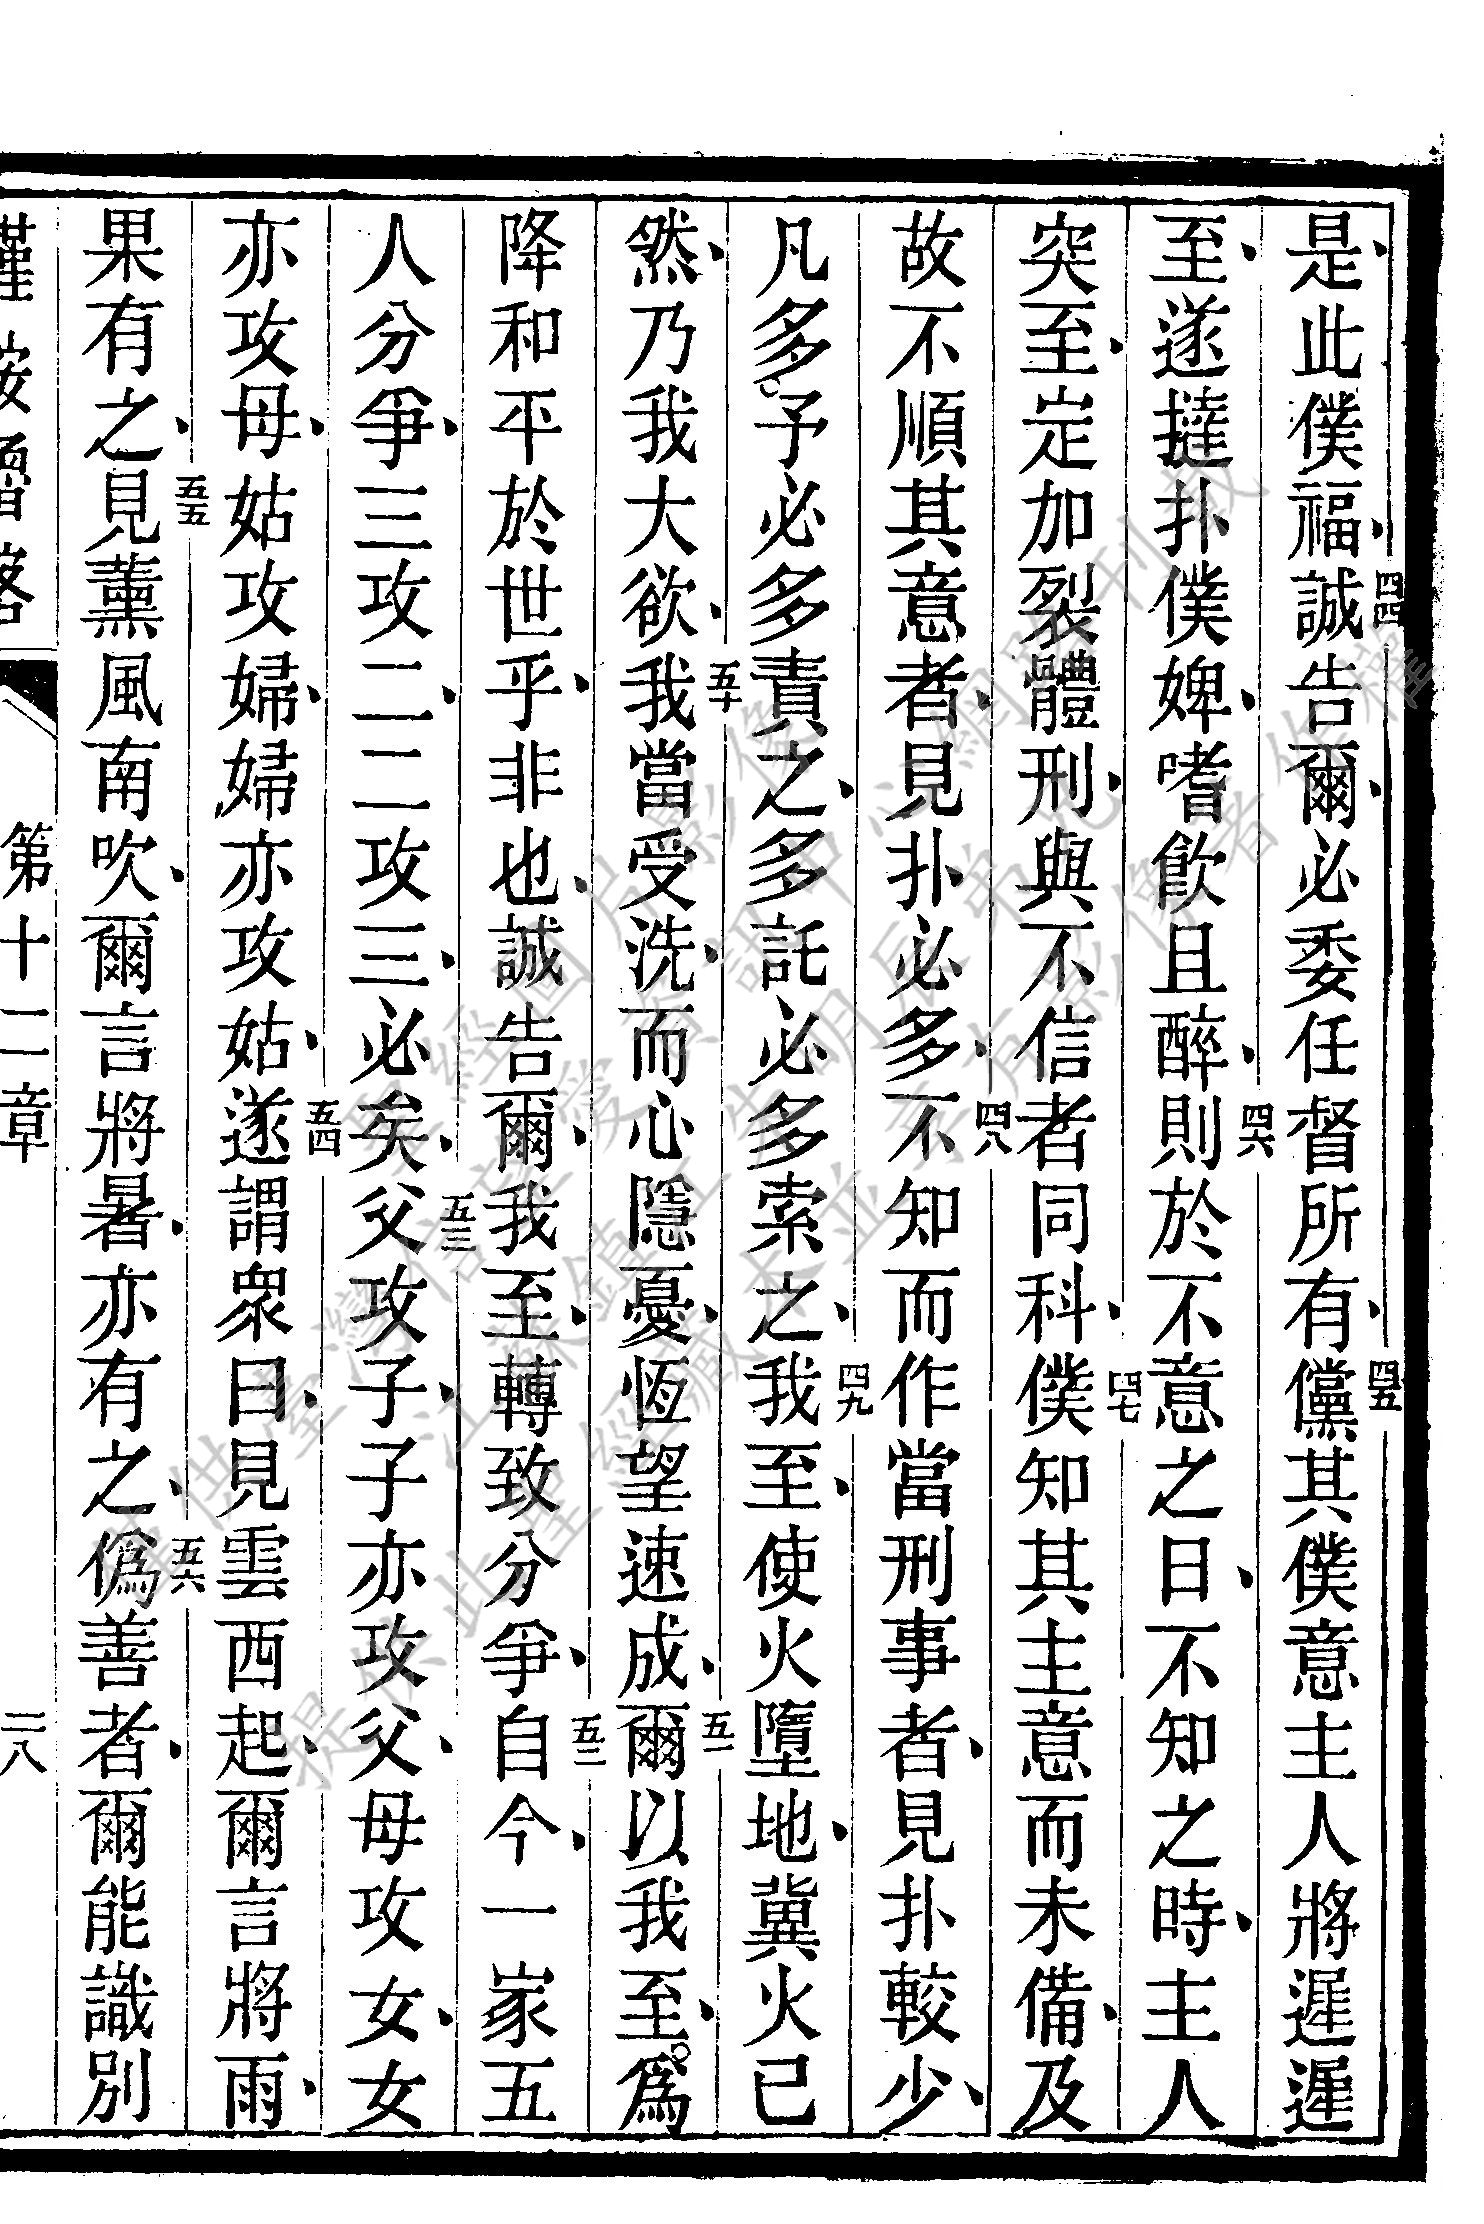 是、此僕福、四四誠告爾、必委任督所有、四五儻其僕意主人將遲遲
至、遂撻扑僕婢、嗜飮且醉、四六則於不意之日、不知之時、主人
突至、定加裂體刑、與不信者同科、四七僕知其主意而未備、及
故不順其意者、見扑必多、四八不知而作當刑事者、見扑較少、
凡多。予必多責之、多託必多索之、四九我至、使火墮地、冀火已
然、乃我大欲、五十我當受洗、而心隱憂、恆望速成、五一爾以我至、爲。
降和平於世乎、非也、誠告爾、我至、轉致分爭、五二自今、一家五
人分爭、三攻二、二攻三、必矣、五三父攻子、子亦攻父、母攻女、女
亦攻母、姑攻婦、婦亦攻姑、五四遂謂衆曰、見雲西起、爾言將雨、
果有之、五五見薰風南吹、爾言將暑、亦有之、五六僞善者、爾能識別
第十二章 二八